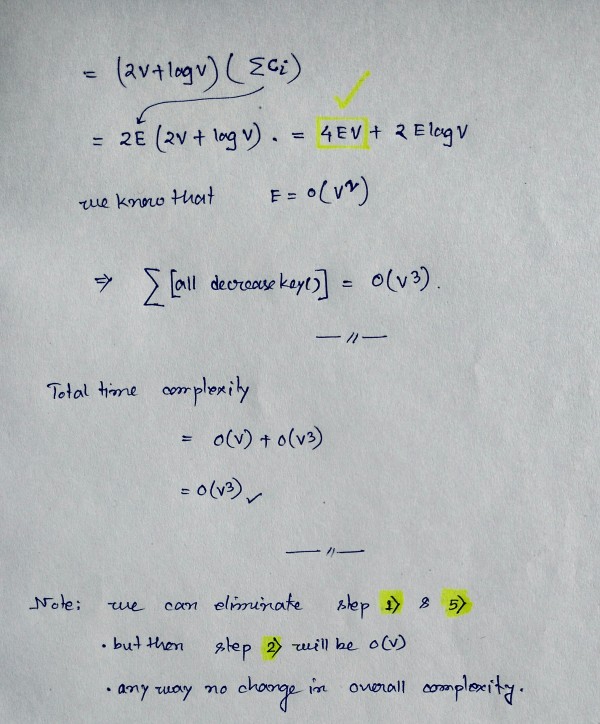 = (2V+logV) ( ΣCi)
= 2E (2V + logV) . = 4EV + 2ElogV
we know that E = O(V²)
⇒ Σ [all decreasekey()] = O(V3).
— 〃 —
Total time complexity
= O(V) + O(V3)
= O(V3) ✓
— 〃 —
Note: we can eliminate step 1) & 5)
• but then step 2) will be O(V)
• any way no change in overall complexity.